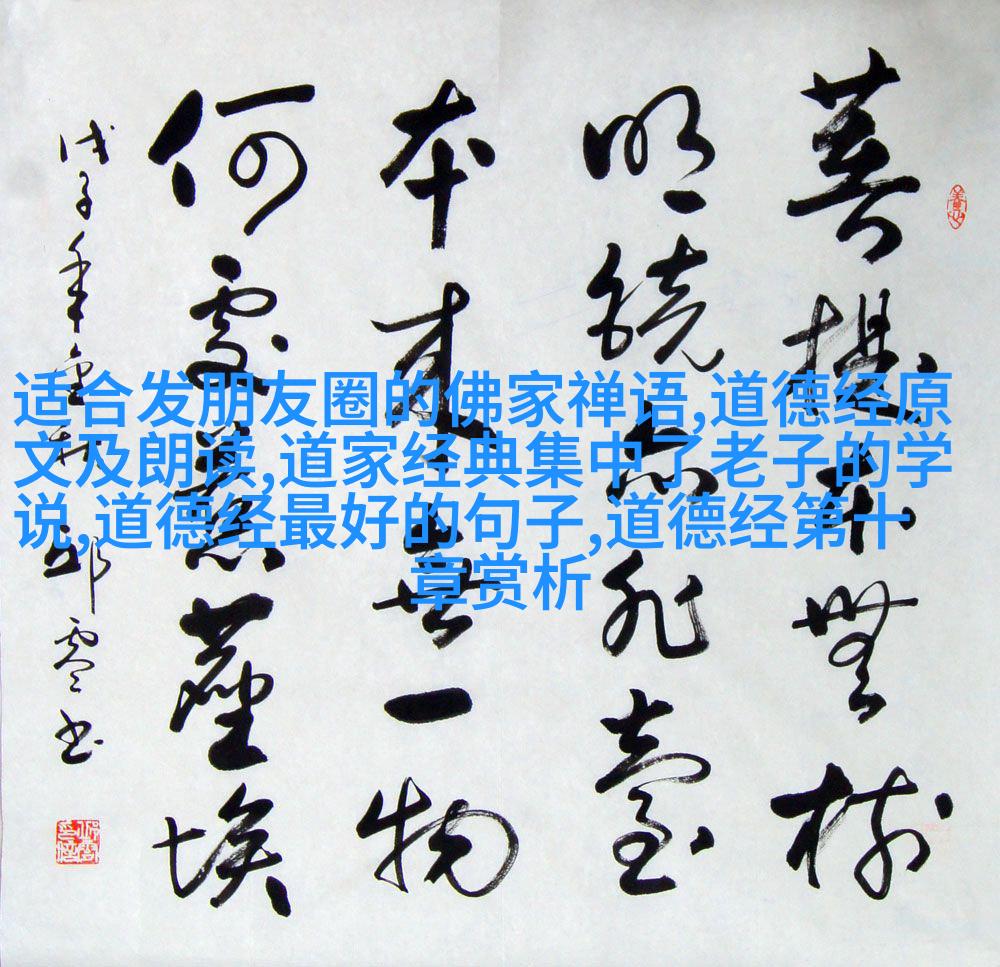 适合发朋友圈的佛家禅语,道德经原
文及朗读,道家经典集中了老子的学
说,道德经最好的句子,道德经第十
章赏析
菩提本無樹
明鏡亦非臺
本来無一物
何處惹塵埃
戊子年金秋邱书